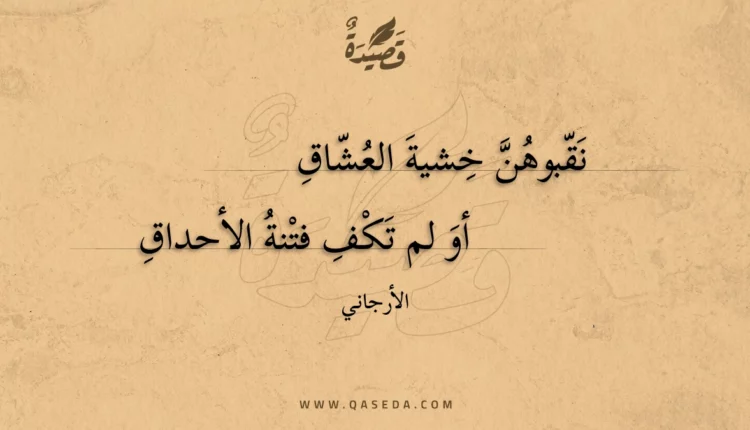 قَصِيْدَةٌ
نَقّبوهُنَّ خِشيةَ العُشّاقِ
أوَ لم تَكْفِ فتْنةُ الأحداقِ
الأرجاني
WWW.QASEDA.COM